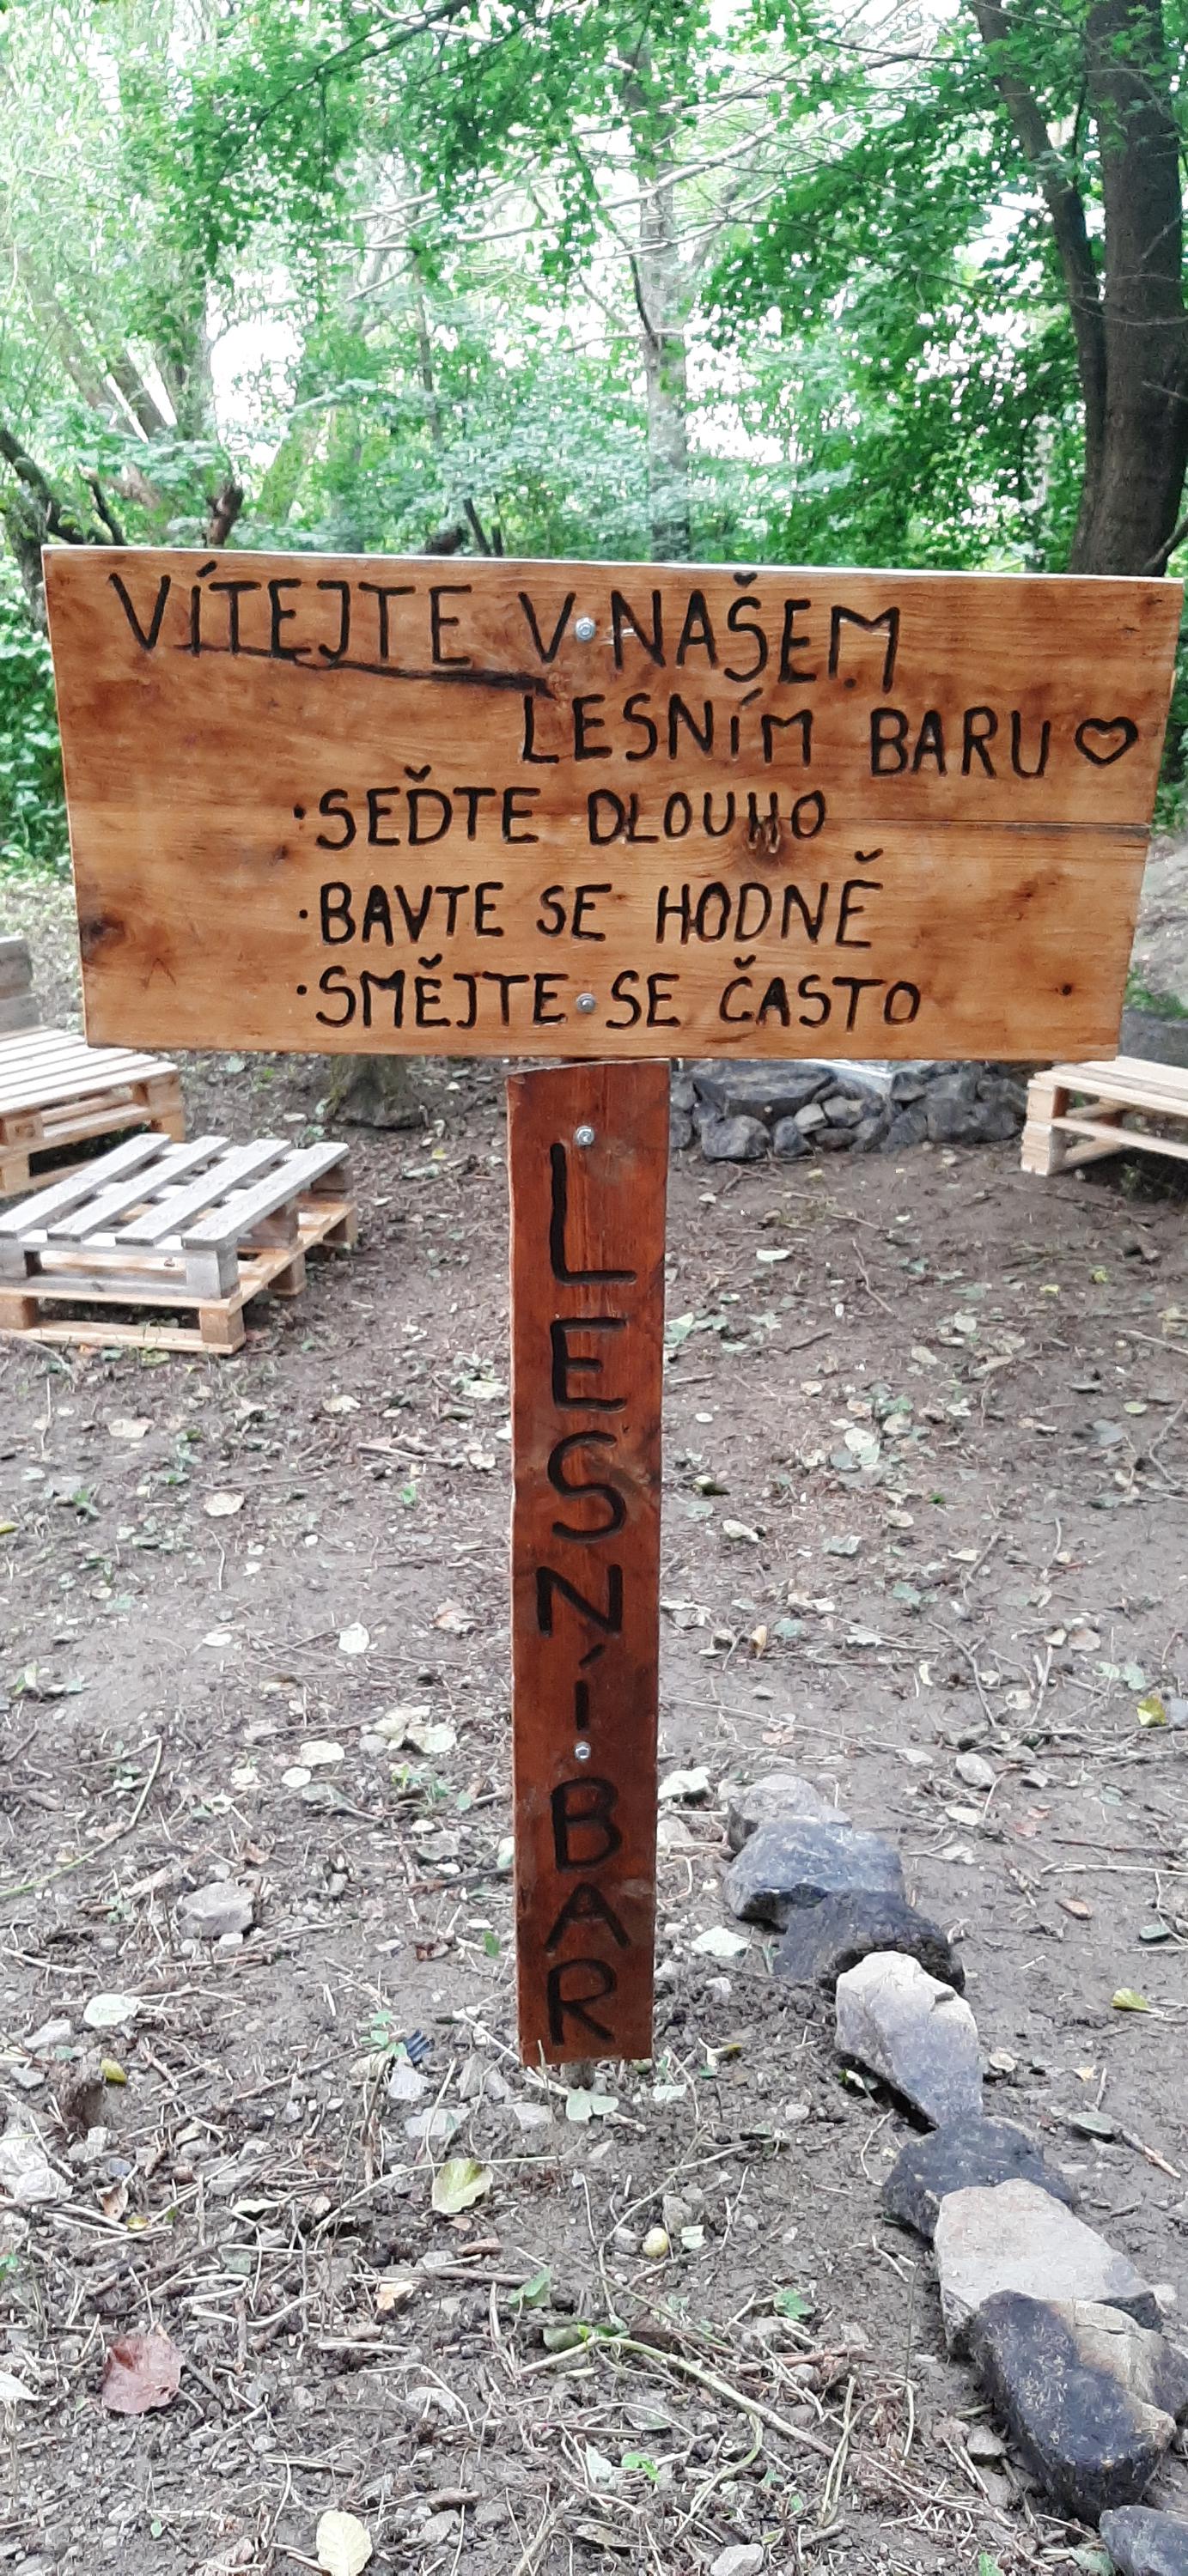 VÍTEJTE V NAŠEM
LESNÍM BARU ♡
·SEĎTE DLOUHO
·BAVTE SE HODNĚ
·SMĚJTE SE ČASTO
LESNÍ BAR